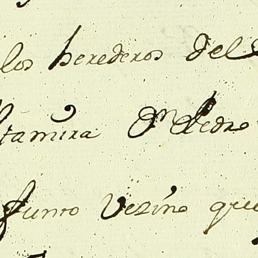 los herederos del
ltamira Dn Pedro
funto vezino que